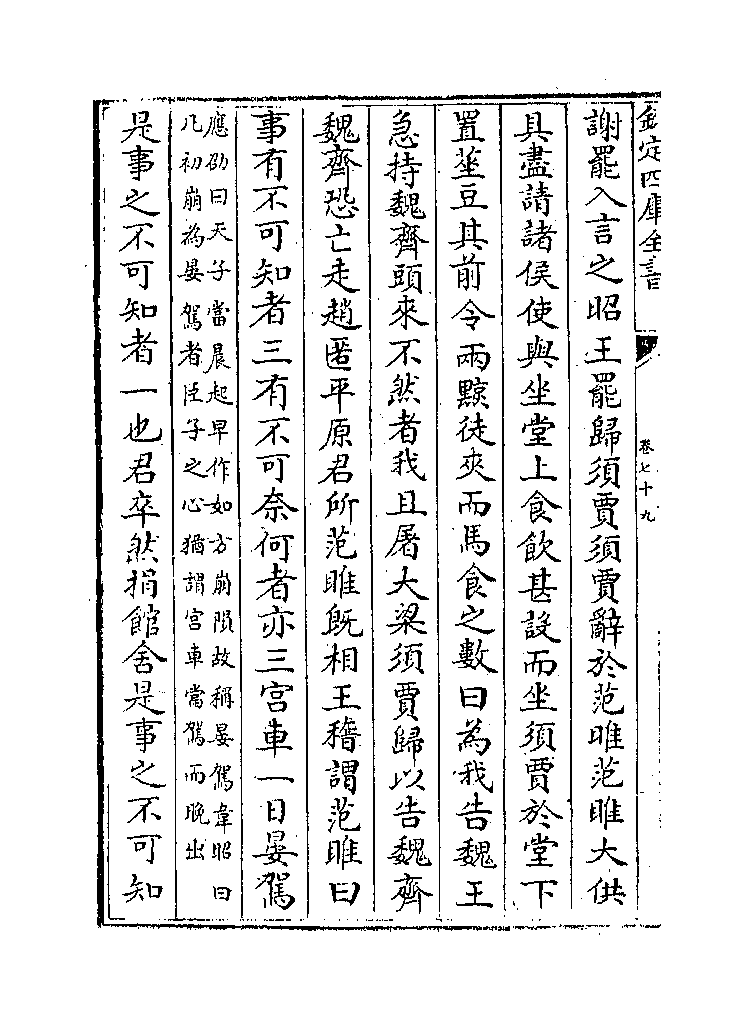 欽定四庫全書
卷七十九
謝罷入言之昭王罷歸須賈須賈辭於范睢范睢大供
具盡請諸侯使與坐堂上食飲甚設而坐須賈於堂下
置莝豆其前令兩黥徒夾而馬食之數曰為我告魏王
急持魏齊頭來不然者我且屠大梁須賈歸以告魏齊
魏齊恐亡走趙匿平原君所范睢既相王稽謂范睢曰
事有不可知者三有不可奈何者亦三宮車一日晏駕
應劭曰天子當晨起早作如方崩隕故稱晏駕韋昭曰
凡初崩為晏駕者臣子之心猶謂宮車當駕而晚出
是事之不可知者一也君卒然捐館舍是事之不可知